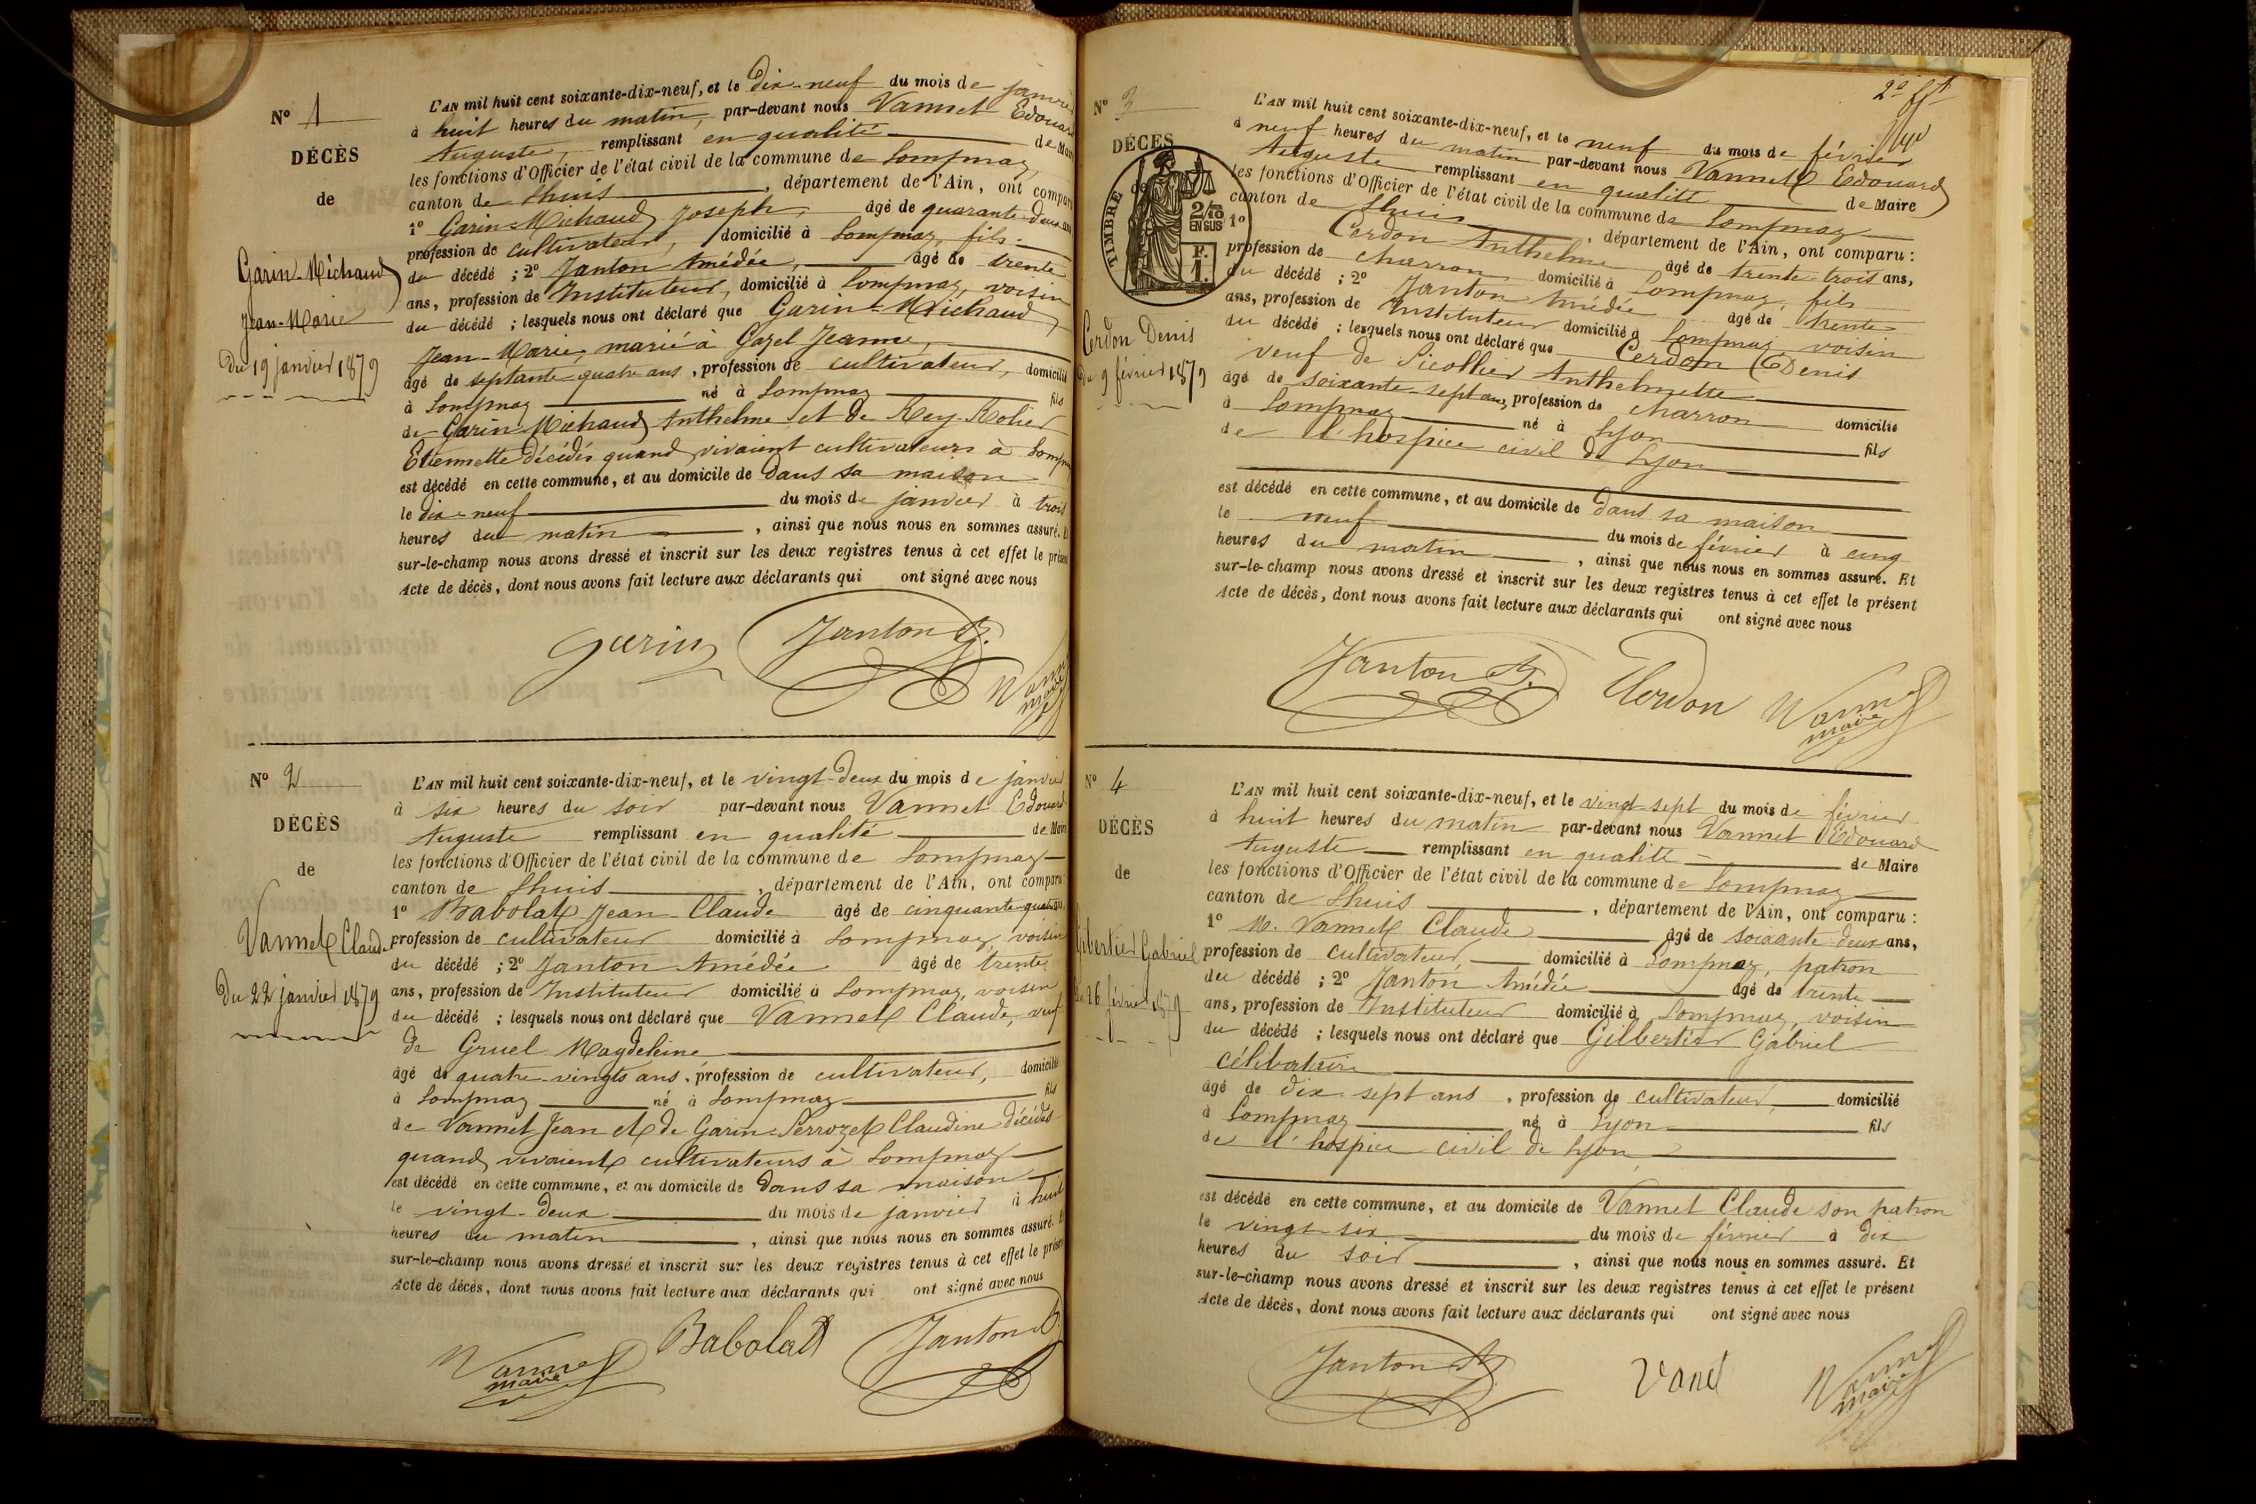 N° 1
DÉCÈS
de
Garin-Michaud
Jean-Marie
Du 19 janvier 1879
L'AN mil huit cent soixante-dix-neuf, et le Dix-neuf du mois de janvier
à huit heures du matin, par-devant nous Vannet Edouard
Auguste, remplissant en qualité de Maire
les fonctions d'Officier de l'état civil de la commune de Lompnaz,
canton de Lhuis, département de l'Ain, ont comparu
1° Garin-Michaud Joseph, âgé de quarante-deux ans
profession de cultivateur, domicilié à Lompnaz, fils
du décédé ; 2° Janton Amédée, âgé de trente
ans, profession de Instituteur, domicilié à Lompnaz, voisin
du décédé ; lesquels nous ont déclaré que Garin-Michaud,
Jean-Marie, marié à Gazel Jeanne,
âgé de septante-quatre ans, profession de cultivateur, domicilié
à Lompnaz né à Lompnaz fils
de Garin-Michaud Anthelme et de Rey-Rolier
Etiennette décédés quand vivaient cultivateurs à Lompnaz
est décédé en cette commune, et au domicile de Dans sa maison
le dix-neuf du mois de janvier à trois
heures du matin, ainsi que nous nous en sommes assuré. Et
sur-le-champ nous avons dressé et inscrit sur les deux registres tenus à cet effet le présent
Acte de décès, dont nous avons fait lecture aux déclarants qui ont signé avec nous
Garin Janton A. Vannet
maire
N° 2
DÉCÈS
de
Vannet Claude
Du 22 janvier 1879
L'AN mil huit cent soixante-dix-neuf, et le vingt-deux du mois de janvier
à six heures du soir par-devant nous Vannet Edouard
Auguste remplissant en qualité de Maire
les fonctions d'Officier de l'état civil de la commune de Lompnaz
canton de Lhuis, département de l'Ain, ont comparu
1° Babolat Jean-Claude âgé de cinquante-quatre
profession de cultivateur domicilié à Lompnaz, voisin
du décédé ; 2° Janton Amédée âgé de trente
ans, profession de Instituteur domicilié à Lompnaz, voisin
du décédé ; lesquels nous ont déclaré que Vannet Claude, veuf
de Gruel Magdeleine
âgé de quatre-vingts ans, profession de cultivateur, domicilié
à Lompnaz né à Lompnaz fils
de Vannet Jean et de Garin-Perrozet Claudine décédés
quand vivaient cultivateurs à Lompnaz
est décédé en cette commune, et au domicile de Dans sa maison
le vingt-deux du mois de janvier à huit
heures du matin, ainsi que nous nous en sommes assuré. Et
sur-le-champ nous avons dressé et inscrit sur les deux registres tenus à cet effet le présent
Acte de décès, dont nous avons fait lecture aux déclarants qui ont signé avec nous
Vannet Babolat Janton A.
maire
N° 3
DÉCÈS
de
TIMBRE
2/10
EN SUS
F.
1.
Cerdon Denis
Du 9 février 1879
L'AN mil huit cent soixante-dix-neuf, et le neuf du mois de février
à neuf heures du matin par-devant nous Vannet Edouard
Auguste remplissant en qualité de Maire
les fonctions d'Officier de l'état civil de la commune de Lompnaz
canton de Lhuis, département de l'Ain, ont comparu :
1° Cerdon Anthelme âgé de trente-trois ans,
profession de charron domicilié à Lompnaz, fils
du décédé ; 2° Janton Amédée âgé de trente
ans, profession de Instituteur domicilié à Lompnaz voisin
du décédé ; lesquels nous ont déclaré que Cerdon Denis
veuf de Picollier Anthelmette
âgé de soixante-sept ans, profession de charron domicilié
à Lompnaz né à Lyon fils
de l'hospice civil de Lyon
est décédé en cette commune, et au domicile de Dans sa maison
le neuf du mois de février à cinq
heures du matin, ainsi que nous nous en sommes assuré. Et
sur-le-champ nous avons dressé et inscrit sur les deux registres tenus à cet effet le présent
Acte de décès, dont nous avons fait lecture aux déclarants qui ont signé avec nous
Janton A. Cerdon Vannet
maire
N° 4
DÉCÈS
de
Gilbertier Gabriel
Du 26 février 1879
L'AN mil huit cent soixante-dix-neuf, et le vingt-sept du mois de février
à huit heures du matin par-devant nous Vannet Edouard
Auguste remplissant en qualité de Maire
les fonctions d'Officier de l'état civil de la commune de Lompnaz
canton de Lhuis, département de l'Ain, ont comparu :
1° M. Vannet Claude âgé de soixante-deux ans,
profession de cultivateur domicilié à Lompnaz, patron
du décédé ; 2° Janton Amédée âgé de trente
ans, profession de Instituteur domicilié à Lompnaz, voisin
du décédé ; lesquels nous ont déclaré que Gilbertier Gabriel
célibataire
âgé de dix sept ans, profession de cultivateur, domicilié
à Lompnaz né à Lyon fils
de l'hospice civil de Lyon,
est décédé en cette commune, et au domicile de Vannet Claude son patron
le vingt-six du mois de février à dix
heures du soir, ainsi que nous nous en sommes assuré. Et
sur-le-champ nous avons dressé et inscrit sur les deux registres tenus à cet effet le présent
Acte de décès, dont nous avons fait lecture aux déclarants qui ont signé avec nous
Janton A. Vanet Vannet
maire